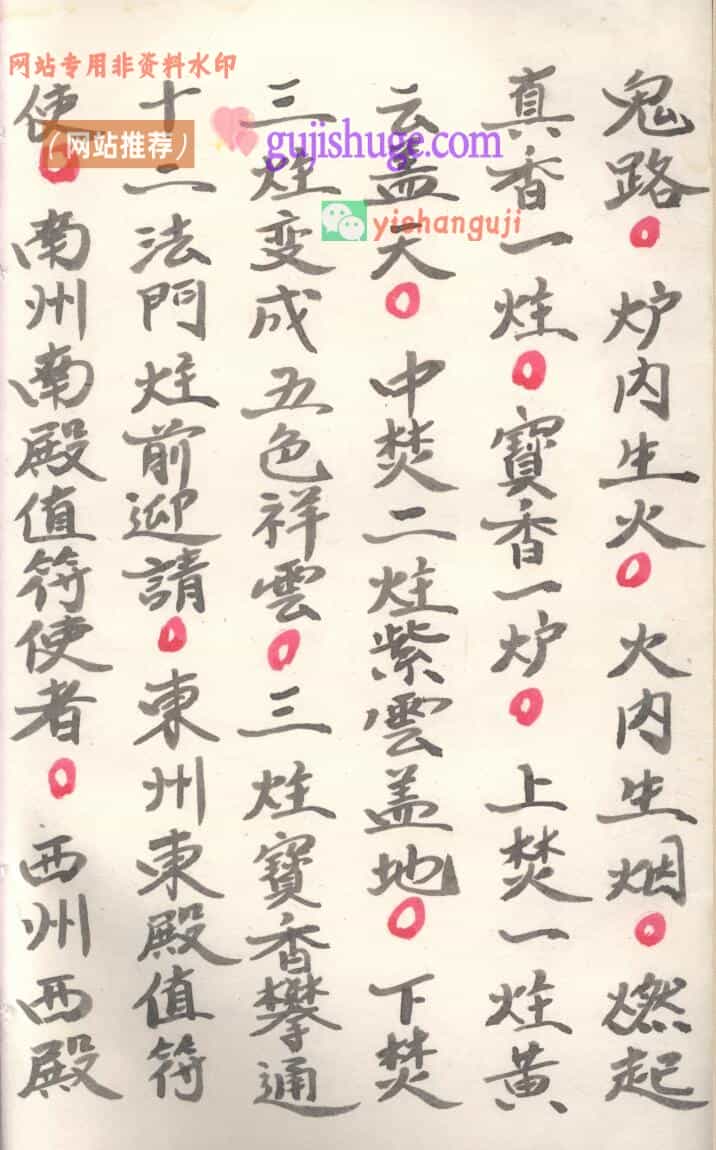 网站专用非资料水印
（网站推荐）
gujishuge.com
yishanguji
鬼路。炉内生火。火内生烟。燃起
真香一炷。寶香一炉。上焚一炷黄
云盖天。中焚二炷紫雲盖地。下焚
三炷变成五色祥雲。三炷寶香攀通
十二法門炷前迎請。東州東殿值符
使。南州南殿值符使者。西州西殿